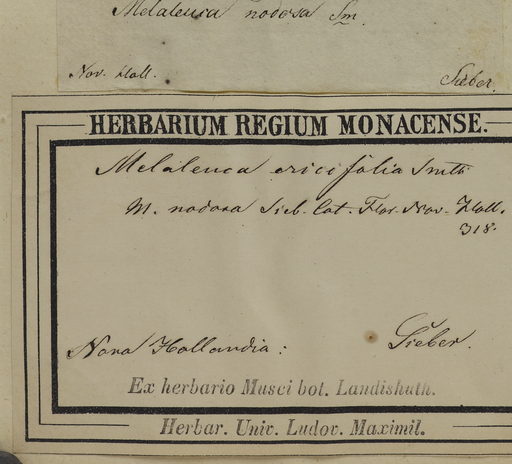 Melaleuca nodosa Sm.
Nov. Holl. Sieber.
HERBARIUM REGIUM MONACENSE.
Melaleuca ericifolia Smth
M. nodosa Sieb. Cat. Flor. Nov. Holl.
318.
Nova Hollandia: Sieber.
Ex herbario Musei bot. Landishuth.
Herbar. Univ. Ludov. Maximil.